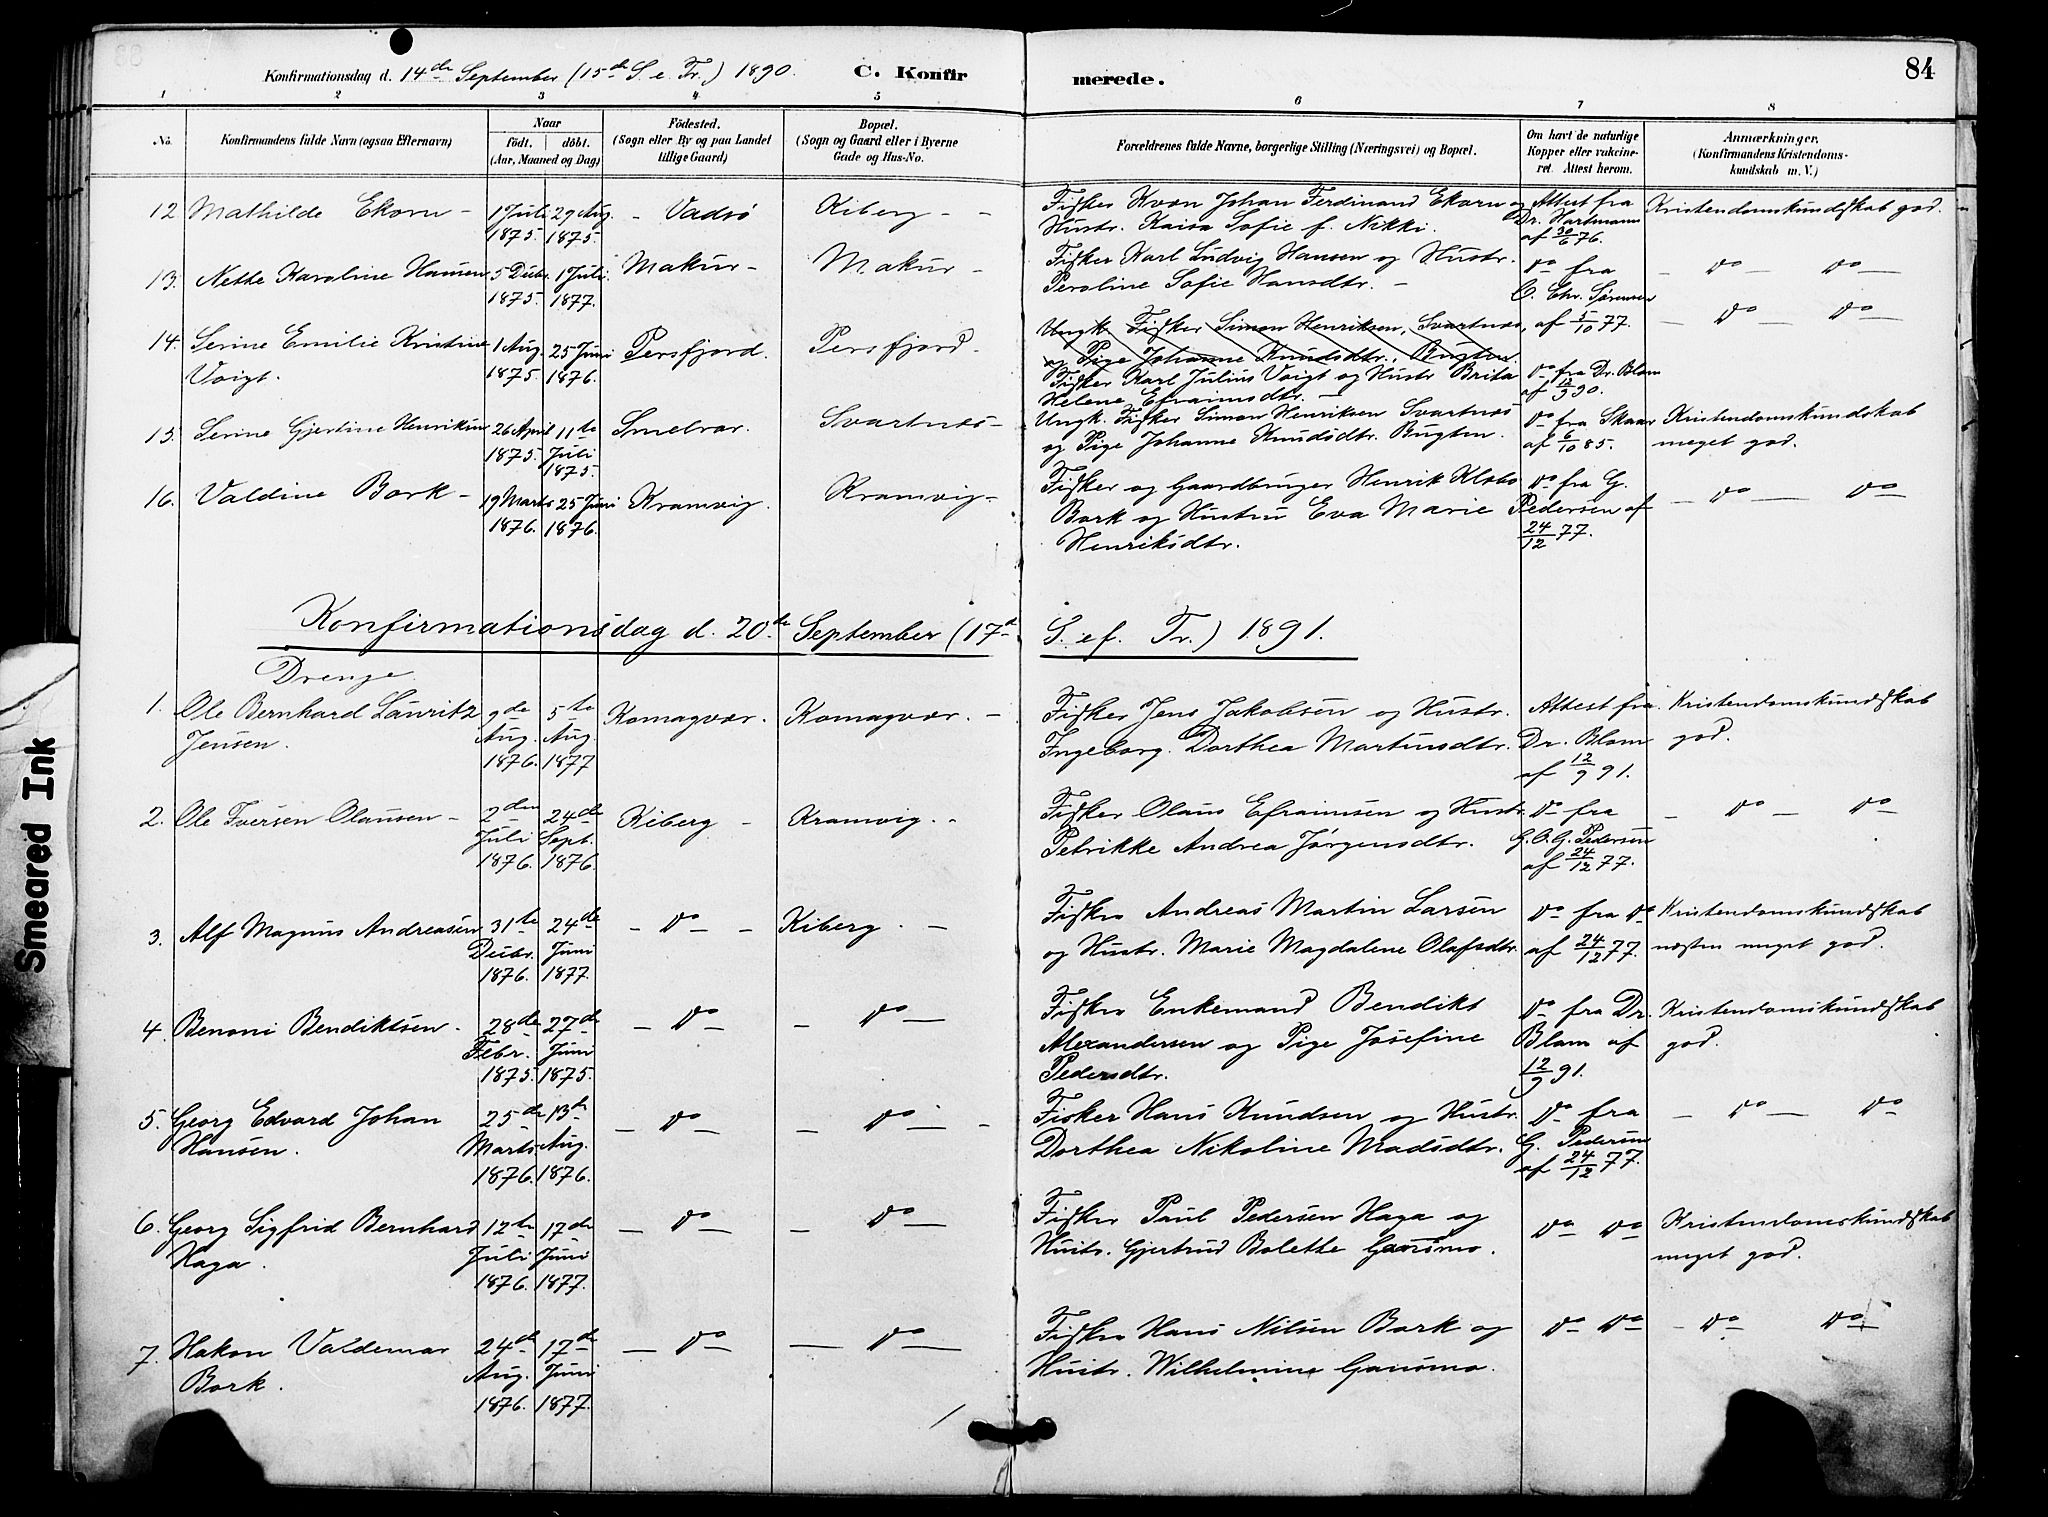 Konfirmationsdag d. 14de September (15de S. e. Tr.) 1890.
C. Konfir
merede.
84
1 2 3 4 5 6 7 8
No.
Konfirmandens fulde Navn (ogsaa Efternavn)
Naar
födt. döbt.
(Aar, Maaned og Dag)
Födested.
(Sogn eller By og paa Landet
tillige Gaard)
Bopæl.
(Sogn og Gaard eller i Byerne
Gade og Hus-No.
Forældrenes fulde Navne, borgerlige Stilling (Næringsvei) og Bopæl.
Om havt de naturlige
Kopper eller vakcine-
ret. Attest herom.
Anmærkninger.
(Konfirmandens Kristendoms-
kundskab m. V.)
12 Mathilde Ekorn -
1 Juli
1875.
29 Aug.
1875.
- Vadsö
Kiberg - -
Fisker Kvæn Johan Ferdinand Ekorn og
Hustr. Kaisa Sofie f. Nikki.
Attest fra
Dr. Hartmann
af 30/6 76.
Kristendomskundskab god.
13. Nette Karoline Hansen
5 Decbr.
1875.
1 Juli
1877.
Makur -
Makur -
Fisker Karl Ludvig Hansen og Hustr.
Peroline Sofie Hansdtr. -
do fra
C. Chr. Sørensen
af 5/10 77.
- do - do -
14. Serine Emilie Kristine
Voigt.
1 Aug.
1875.
25 Juni
1876.
Persfjord.
Persfjord.
Ungk. Fisker Simon Henriksen, Svartnes,
og Pige Johanne Knudsdtr., Bugten.
Fisker Karl Julius Voigt og Hustr Brita
Helene Efraimsdtr. -
do fra Dr. Blom
af 12/9 90.
- do - do -
15. Serine Gjertine Henriksen
26 April
1875.
11te
Juli
1875.
Smelror.
Svartnes -
Ungk. Fisker Simon Henriksen Svartnes
og Pige Johanne Knudsdtr. Bugten.
do fra Skaar
af 6/10 85.
Kristendomskundskab
meget god.
16. Valdine Bork -
19 Marts
1876.
25 Juni
1876.
Kramvig.
Kramvig -
Fisker og Gaardbruger Henrik
Bork og Hustru Eva Marie
Henriksdtr.
do fra G.
Pedersen af
24/12 77.
- do - do
Konfirmationsdag d. 20de September (17de
S. ef. Tr.) 1891.
Drenge
1. Ole Bernhard Lauritz
Jensen.
9de
Aug.
1876.
5te
Aug.
1877
Komagvær.
Komagvær. -
Fisker Jens Jakobsen og Hustr.
Ingeborg Dorthea Martinsdtr.
Attest fra
Dr. Blom
af 12/9 91.
Kristendomskundskab
god.
2. Ole Iversen Olausen -
2den
Juli
1876.
24de
Sept.
1876.
Kiberg -
Kramvig. -
Fisker Olaus Efraimsen og Hustr.
Petrikke Andrea Jørgensdtr.
do fra
G. O. G. Pedersen
af 24/12 77.
- do - do
3. Alf Magnus Andreasen
31te
Decbr.
1876.
24de
Juni
1877.
- do -
Kiberg. -
Fisker Andreas Martin Larsen
og Hustr. Marie Magdalene Olafsdtr.
do fra do
af 24/12 77.
Kristendomskundskab
næsten meget god.
4. Benoni Bendiktsen -
28de
Febr.
1875.
27de
Juni
1875.
- do -
- do -
Fisker Enkemand Bendikt
Alexandersen og Pige Josefine
Pedersdtr.
do fra Dr.
Blom af
12/9 91.
Kristendomskundskab
god.
5. Georg Edvard Johan
Hansen.
25de
Marts
1876.
13de
Aug.
1876.
- do -
- do -
Fisker Hans Knudsen og Hustr.
Dorthea Nikoline Madsdtr.
do fra
G. Pedersen
af 24/12 77.
- do - do
6. Georg Sigfrid Bernhard
Haga.
12te
Juli
1876.
17de
Juni
1877.
- do -
- do -
Fisker Paul Pedersen Haga og
Hustr. Gjertrud Bolette Gansmo.
do do
Kristendomskundskab
meget god.
7. Hakon Valdemar
Bork.
24de
Aug.
1876.
17de
Juni
1877.
- do -
- do -
Fisker Hans Nilsen Bork og
Hustr. Wilhelmine Gansmo.
do do
- do - do
Smeared Ink